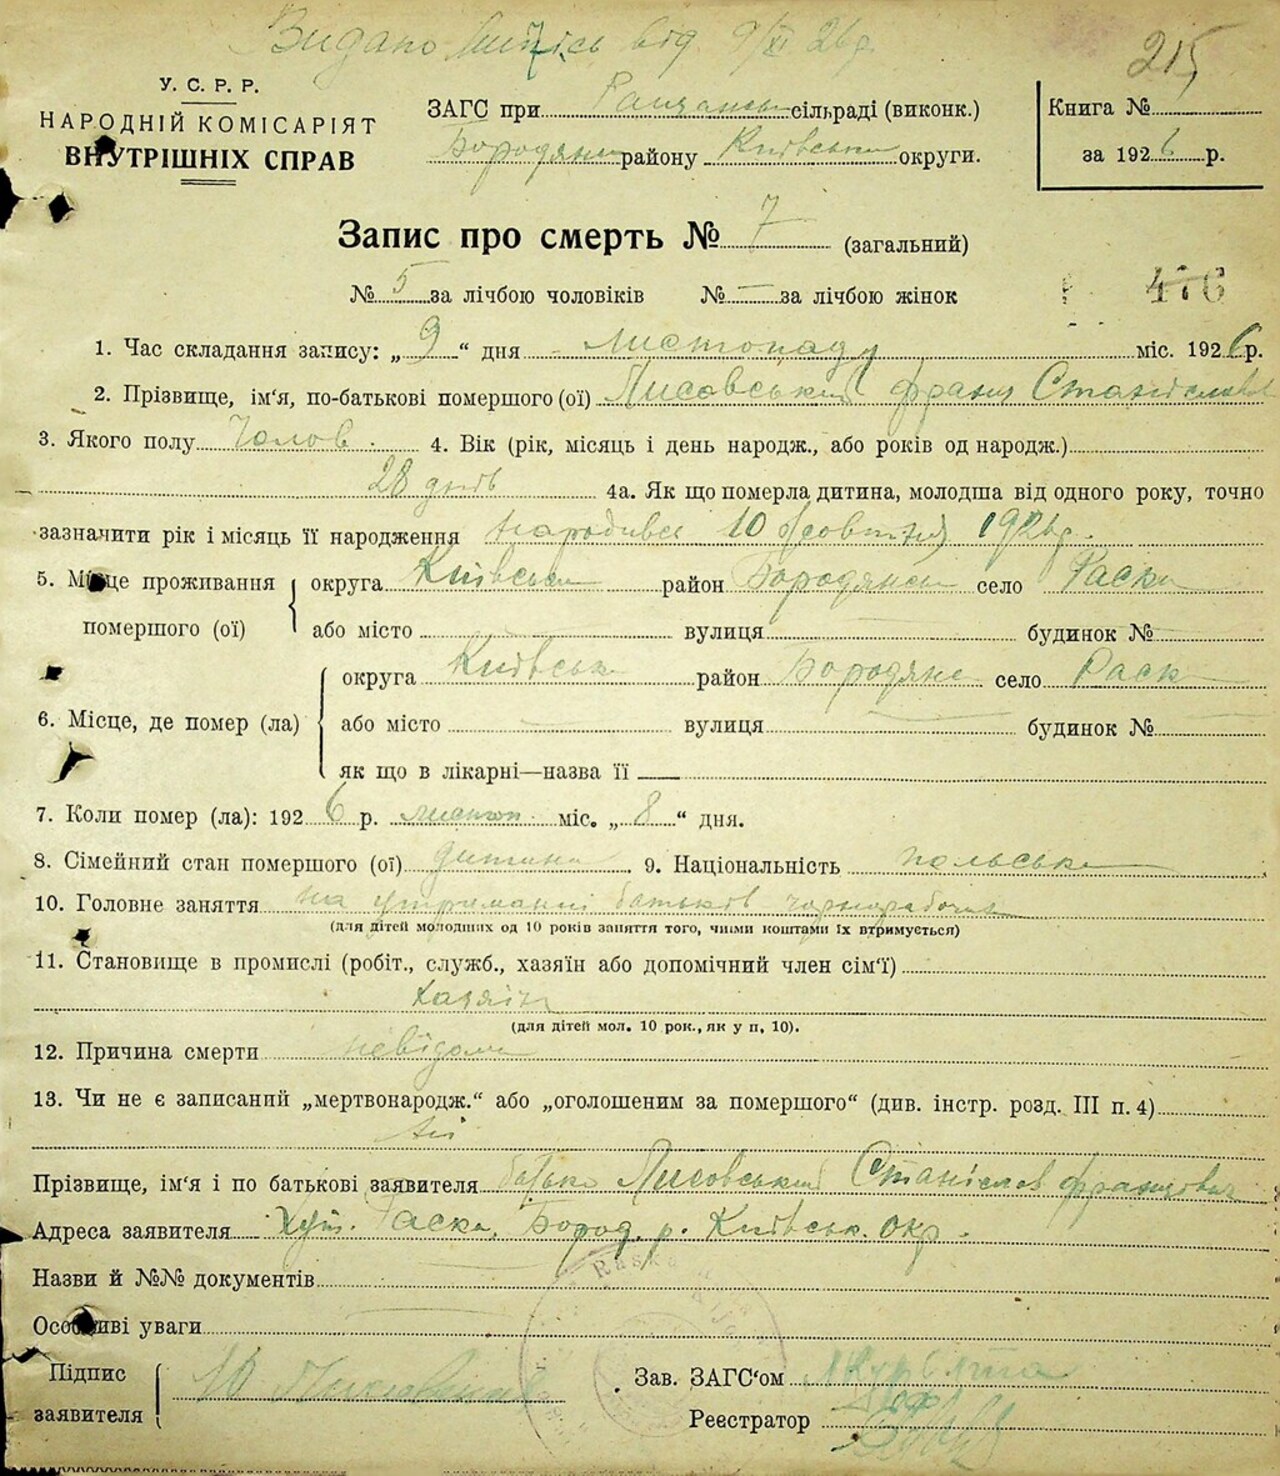 Видано від 9/XI 26 р.
215
У. С. Р. Р.
НАРОДНІЙ КОМІСАРІЯТ
ВНУТРІШНІХ СПРАВ
ЗАГС при сільраді (виконк.)
Бородянск району Київськ округи.
Книга №
за 1926 р.
Запис про смерть № 7 (загальний)
№ 5 за лічбою чоловіків № — за лічбою жінок
476
1. Час складання запису: „ 9 “ дня листопаду міс. 1926 р.
2. Прізвище, ім‘я, по-батькові помершого (ої) Лисовський Франц Станіславов
3. Якого полу Чолов. 4. Вік (рік, місяць і день народж., або років од народж.)
28 днів 4а. Як що померла дитина, молодша від одного року, точно
зазначити рік і місяць її народження народився 10 жовтня 1926 р.
5. Місце проживання помершого (ої) округа Київськ район Бородянск село Раска
або місто вулиця будинок №
6. Місце, де помер (ла) округа Київськ район Бородянс село Раск
або місто вулиця будинок №
як що в лікарні—назва її
7. Коли помер (ла): 1926 р. листоп. міс. „ 8 “ дня.
8. Сімейний стан помершого (ої) дитина 9. Національність польськ
10. Головне заняття на утриманні батьків чорнорабочих
(для дітей молодших од 10 років заняття того, чиїми коштами їх втримується)
11. Становище в промислі (робіт., служб., хазяїн або допомічний член сім‘ї)
Хазяїн
(для дітей мол. 10 рок., як у п. 10).
12. Причина смерти невідома
13. Чи не є записаний „мертвонародж.“ або „оголошеним за помершого“ (див. інстр. розд. III п. 4)
Ні
Прізвище, ім‘я і по батькові заявителя батько Лисовський Станіслав Францович
Адреса заявителя Хут. Раска, Бород. р. Київськ. окр.
Назви й №№ документів
Особливі уваги
Підпис заявителя
Зав. ЗАГС‘ом
Реєстратор